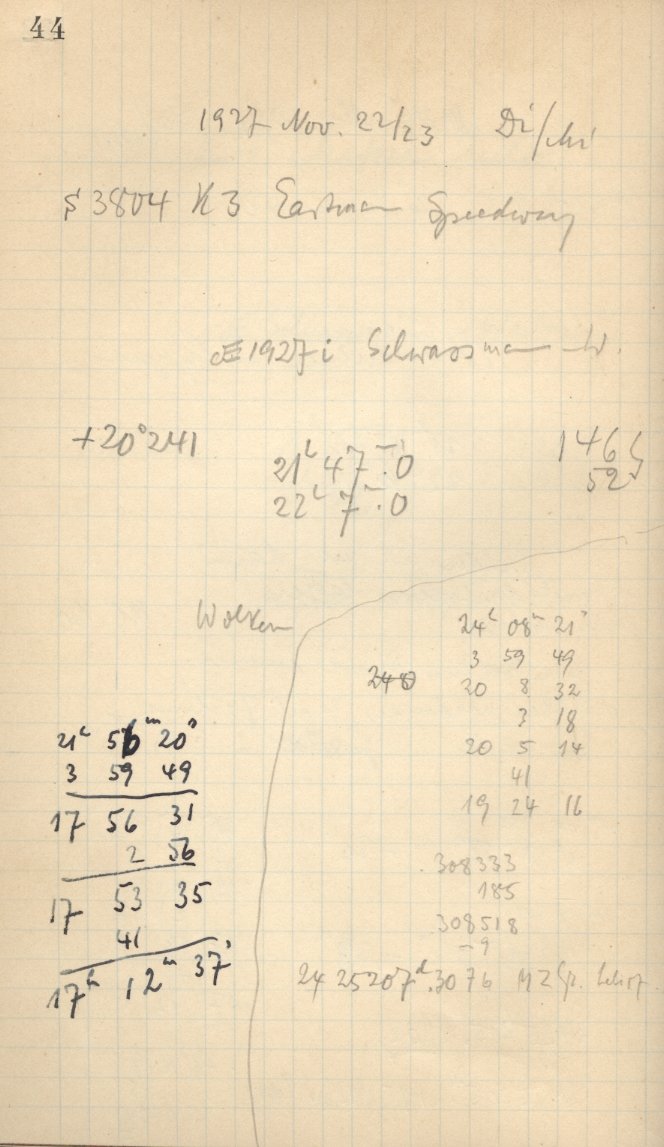 44
1927 Nov. 22/23 Di/Mi
S 3804 K3 Eastman Speedway
1927 i Schwassmann W.
+20°241
21h 47m.0
22h 7m.0
146
52
Wolken
24h 08m 21s
3 59 49
248
20 8 32
3 18
20 5 14
41
19 24 16
21h 56m 20s
3 59 49
17 56 31
2 56
17 53 35
41
17h 12m 37s
.308333
185
308518
-9
24 25207d.3076 M Z Gr.